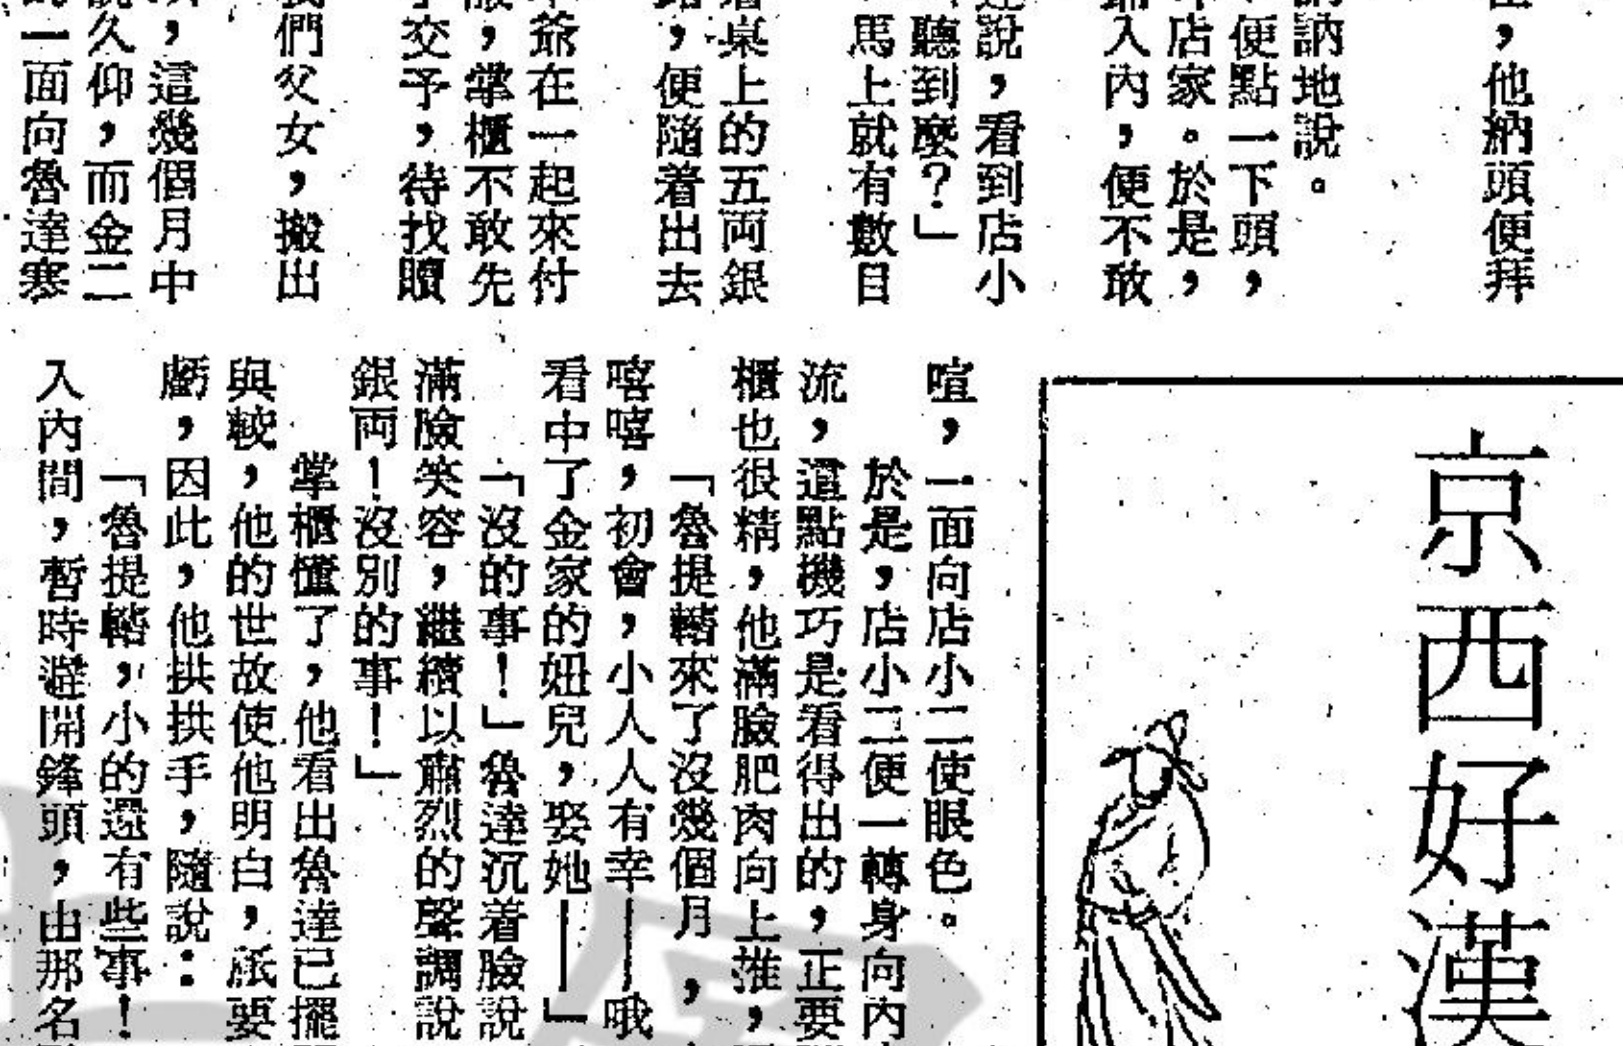 ，他納頭便拜
訥訥地說。
便點一下頭，
店家。於是，
入內，便不敢
說，看到店小
聽到麼？」
馬上就有數目
桌上的五両銀
，便隨着出去
爺在一起來付
，掌櫃不敢先
交予，待找贖
們父女，搬出
，這幾個月中
久仰，而金二
一面向魯達寒
京西好漢
喧，一面向店小二使眼色。
於是，店小二便一轉身向內
流，這點機巧是看得出的，正要
櫃也很精，他滿臉肥肉向上推，
「魯提轄來了沒幾個月，
嘻嘻，初會，小人人有幸——哦
看中了金家的妞兒，娶她——」
「沒的事！」魯達沉着臉說
滿臉笑容，繼續以肅烈的聲調說
銀両！沒別的事！」
掌櫃懂了，他看出魯達已擺
與較，他的世故使他明白，祇要
虧，因此，他拱拱手，隨說：
「魯提轄，小的還有些事！
入內間，暫時避開鋒頭，由那名